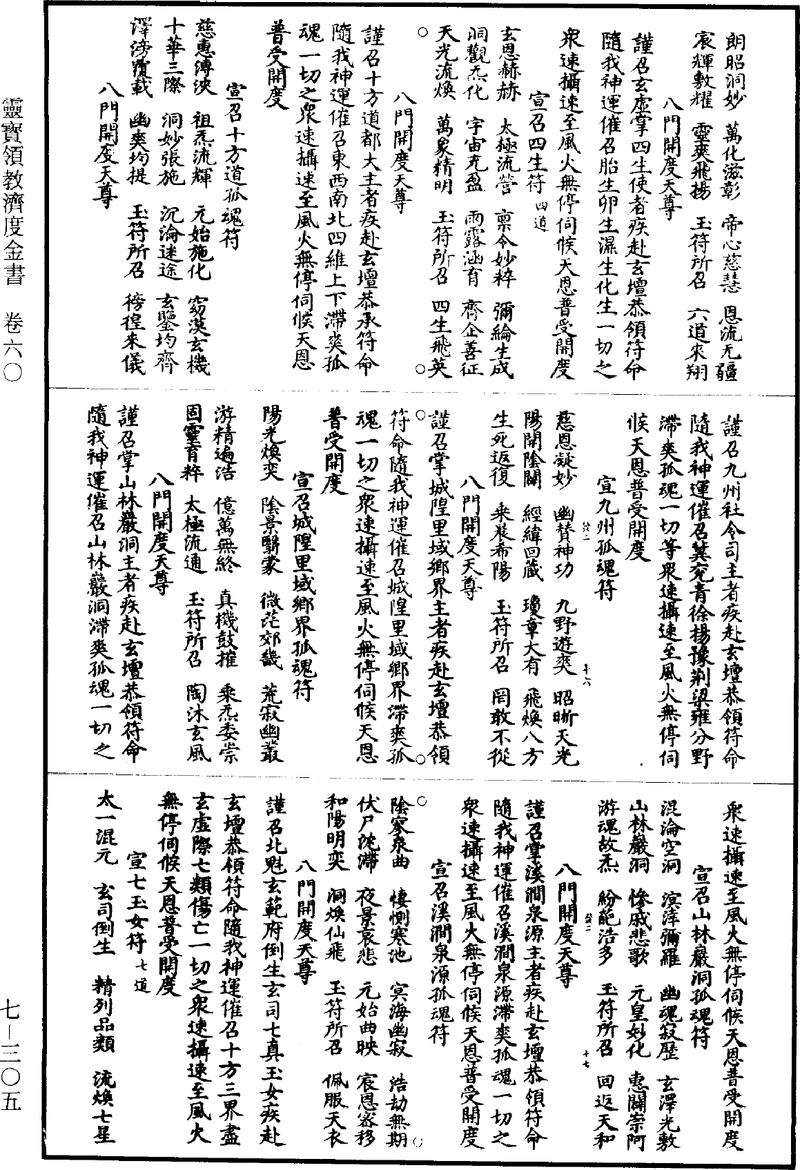 靈寶領教濟度金書　卷六〇
七—三〇五
朗昭洞妙　萬化滋彰　帝心慈慧　恩流无疆
宸輝敷耀　靈爽飛揚　玉符所召　六道來翔
八門開度天尊
謹召玄虛掌四生使者疾赴玄壇恭領符命
隨我神運催召胎生卵生濕生化生一切之
眾速攝速至風火無停伺候天恩普受開度
宣召四生符四道
玄恩赫赫　太極流營　稟令妙粹　彌綸生成
洞觀炁化　宇宙充盈　雨露涵育　齊企善征
天光流煥　萬象精明　玉符所召　四生飛英
八門開度天尊
謹召十方道都大主者疾赴玄壇恭承符命
隨我神運催召東西南北四維上下滯爽孤
魂一切之眾速攝速至風火無停伺候天恩
普受開度
宣召十方道孤魂符
慈惠溥泱　祖炁流輝　元始施化　窈漠玄機
十華三際　洞妙張施　沉淪迷途　玄鑒均齊
澤滂覆載　幽爽均提　玉符所召　徬徨來儀
八門開度天尊
謹召九州社令司主者疾赴玄壇恭領符命
隨我神運催召冀兗青徐揚豫荆梁雍分野
滯爽孤魂一切等眾速攝速至風火無停伺
候天恩普受開度
宣九州孤魂符
慈恩凝妙　幽贊神功　九野遊爽　昭晰天光
陽開陰闢　經緯回藏　瓊章大有　飛煥八方
生死返復　乘晨希陽　玉符所召　罔敢不從
八門開度天尊
謹召掌城隍里域鄉界主者疾赴玄壇恭領
符命隨我神運催召城隍里域鄉界滯爽孤
魂一切之眾速攝速至風火無停伺候天恩
普受開度
宣召城隍里域鄉界孤魂符
陽光煥奕　陰景翳蒙　微茫郊畿　荒寂幽叢
游精遍浩　億萬無終　真機鼓摧　乘炁委崇
固靈育粹　太極流通　玉符所召　陶沐玄風
八門開度天尊
謹召掌山林巖洞主者疾赴玄壇恭領符命
隨我神運催召山林巖洞滯爽孤魂一切之
眾速攝速至風火無停伺候天恩普受開度
宣召山林巖洞孤魂符
混淪空洞　溟涬彌羅　幽魂寂歷　玄澤光敷
山林巖洞　慘戚悲歌　元皇妙化　惠關崇阿
游魂故炁　紛紜浩多　玉符所召　回返天和
十七
八門開度天尊
謹召掌溪澗泉源主者疾赴玄壇恭領符命
隨我神運催召溪澗泉源滯爽孤魂一切之
眾速攝速至風火無停伺候天恩普受開度
宣召溪澗泉源孤魂符
陰寥泉曲　悽惻寒池　冥海幽寂　浩劫無期
伏尸沈滯　夜景哀悲　元始曲映　宸恩密移
和陽明奕　洞煥仙飛　玉符所召　佩服天衣
八門開度天尊
謹召北魁玄範府倒生玄司七真玉女疾赴
玄壇恭領符命隨我神運催召十方三界盡
玄虛際七類傷亡一切之眾速攝速至風火
無停伺候天恩普受開度
宣七玉女符七道
太一混元　玄司倒生　精列品類　流煥七星